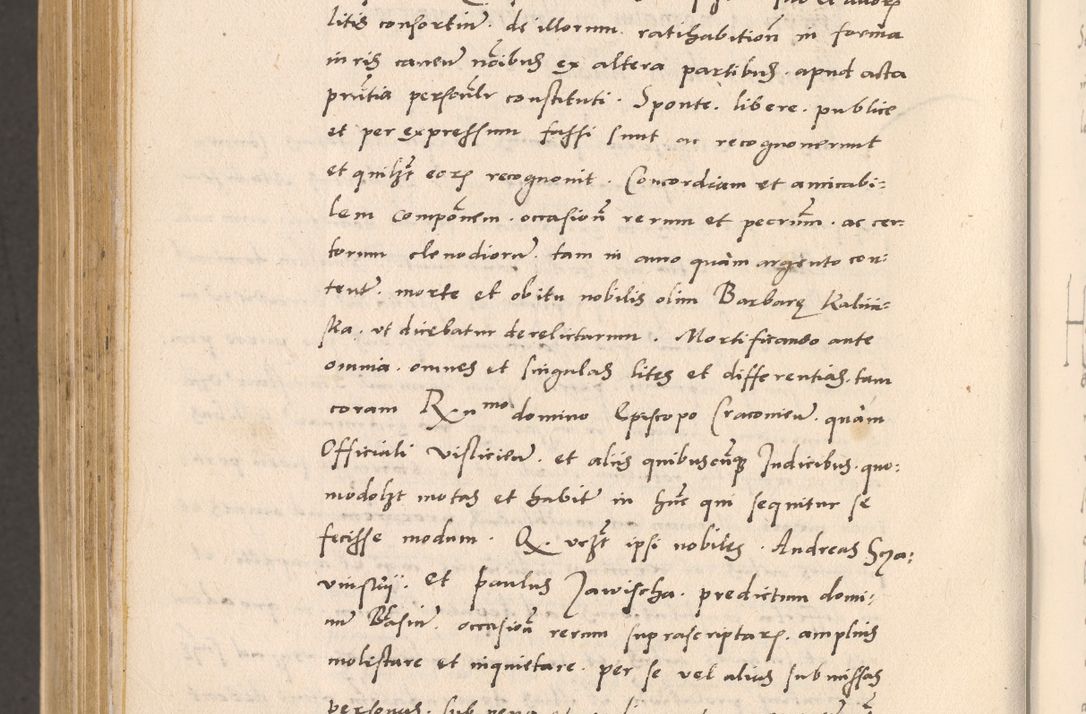 litis consortiū. de illorum. ratihabitioñ in forma
iuris caveñ nōibus ex altera partibus. apud acta
pr̃ntia personl̃r constituti. Sponte. libere. publice
et per expressum fassi sunt ac recognoverunt
et quilꝫt eorꝝ recognovit. Concordiam et amicabi-
lem Compōnem. occasioñ rerum et pecuniar̃. ac cer-
torum clenodiorū. tam in auro quam argento con-
tent̃. morte et obitu nobilis olim Barbarę Kaliii-
ska. ut dicebatur derelictarum. Mortificando ante
omnia. omnes et singulas lites et differentias. tam
coram R.mo domino Episcopo Cracovieñ. quàm
Officiali Vislicieñ. et aliis quibuscūqꝫ Judicibus. quo-
modolꝫt motas et habit̃ in hūc qui sequitur se
fecisse modum. Q. vꝫt ipsi nobiles. Andreas Scza-
vinskii. et Paulus Jawischa. predictum domi-
nū Blasiū. occasioñ rerum suprascriptarꝝ. amplius
molestare et inquietare. per se vel alias submissas
personas. sub pena et